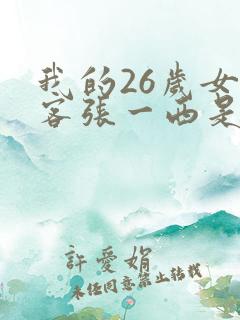 我的26歲女
客張一西是
許愛娟
未經同意禁止轉載